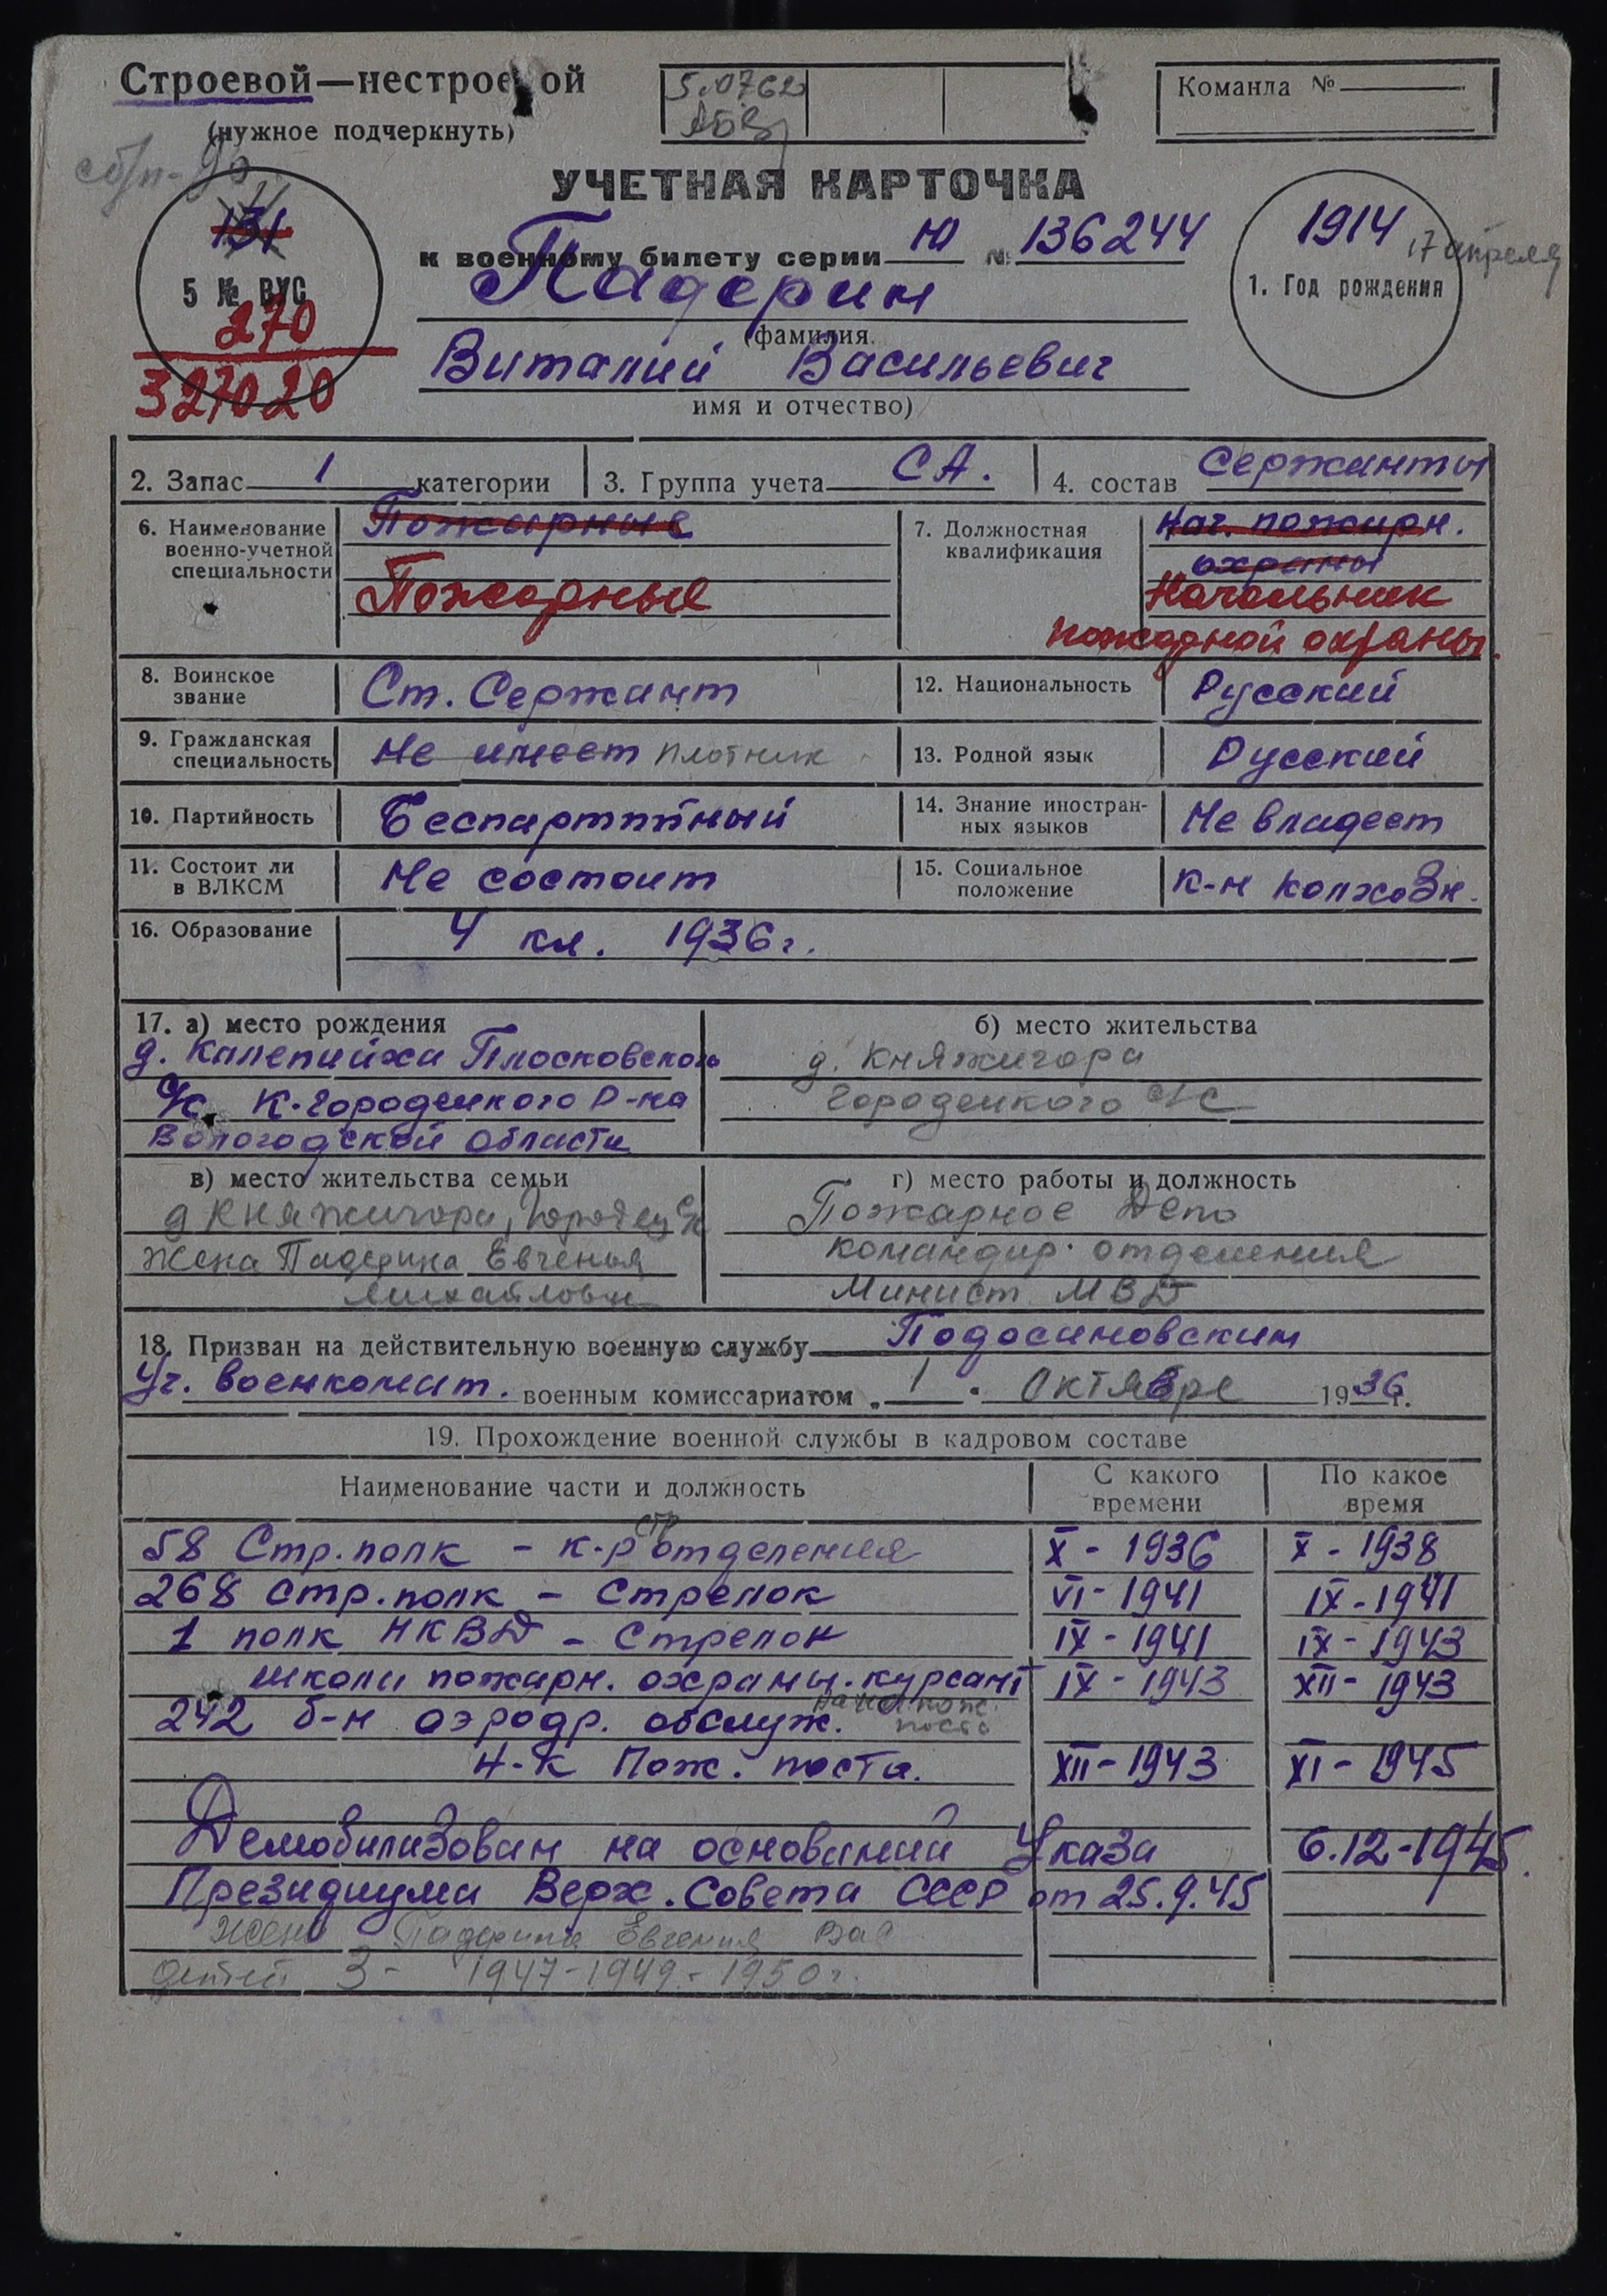 Строевой—нестроевой
(нужное подчеркнуть)
5.0762
Команда №
УЧЕТНАЯ КАРТОЧКА
к военному билету серии Ю № 136244
131
5 № ВУС
270
327020
1914
17 апреля
1. Год рождения
Падерин
(фамилия.
Виталий Васильевич
имя и отчество)
2. Запас 1 категории 3. Группа учета СА. 4. состав Сержанты
6. Наименование военно-учетной специальности
Пожарные
Пожарные
7. Должностная квалификация
Нач. пожарн.
охраны
Начальник
пожарной охраны.
8. Воинское звание Ст. Сержант
12. Национальность Русский
9. Гражданская специальность Не имеет плотник
13. Родной язык Русский
10. Партийность Беспартийный
14. Знание иностран-ных языков Не владеет
11. Состоит ли в ВЛКСМ Не состоит
15. Социальное положение к-н колхозн.
16. Образование 4 кл. 1936г.
17. а) место рождения
д. Калепийха Плосковского
с/с К-городецкого р-на
Вологодской области
б) место жительства
д. Княжигора
Городецкого с/с
в) место жительства семьи
д Княжигора, Городец с/с
Жена Падерина Евгенья
Михайловн
г) место работы и должность
Пожарное Депо
командир отделения
Минист МВД
18. Призван на действительную военную службу Подосиновским
Уч. военкомат. военным комиссариатом „ 1 " Октябре 1936г.
19. Прохождение военной службы в кадровом составе
Наименование части и должность С какого времени По какое время
58 Стр. полк - к-р стр отделения X - 1936 X - 1938
268 стр. полк - Стрелок VI - 1941 IX - 1941
1 полк НКВД - Стрелок IX - 1941 IX - 1943
школы пожарн. охраны. курсант IX - 1943 XII - 1943
242 б-н аэродр. обслуж. нач пож. поста
Н-к Пож. поста. XII - 1943 XI - 1945
Демобилизован на оснований Указа 6.12-1945.
Президиума Верх. Совета СССР от 25.9.45
жена Падерина Евгения Вас
детей 3 - 1947 - 1949 - 1950г.